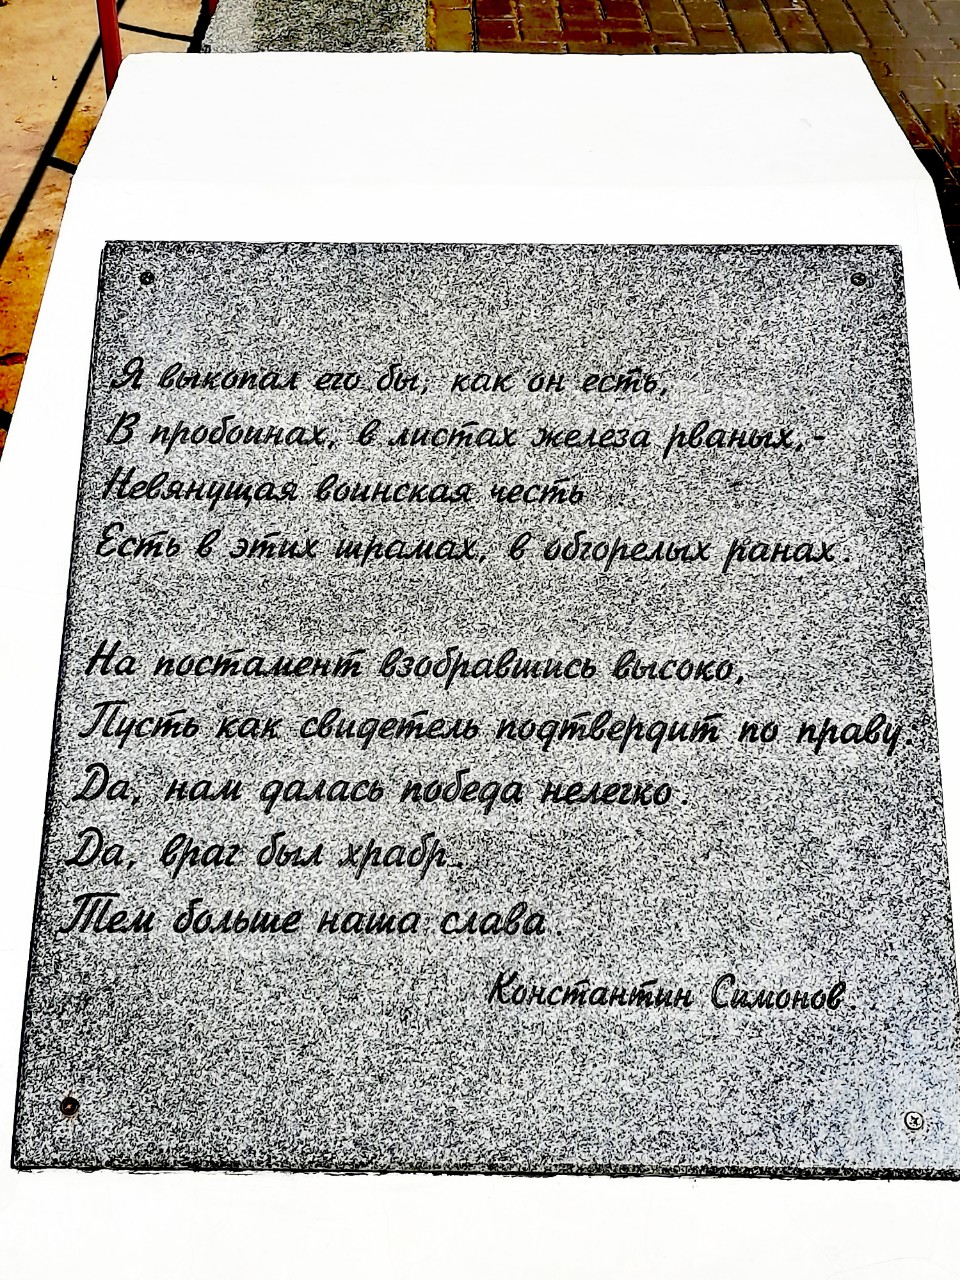 Я выкопал его бы, как он есть,
В пробоинах, в листах железа рваных,-
Невянущая воинская честь
Есть в этих шрамах, в обгорелых ранах.
На постамент взобравшись высоко,
Пусть как свидетель подтвердит по праву.
Да, нам далась победа нелегко.
Да, враг был храбр..
Тем больше наша слава.
Константин Симонов